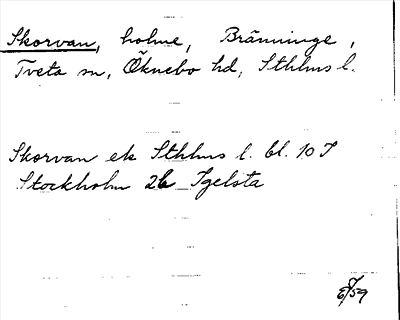 Skorvan, holme, Bränninge,
Tveta sn, Öknebo hd, Sthlms l.
Skorvan ek Sthlms l. bl. 10 I
Stockholm 2b Igelsta